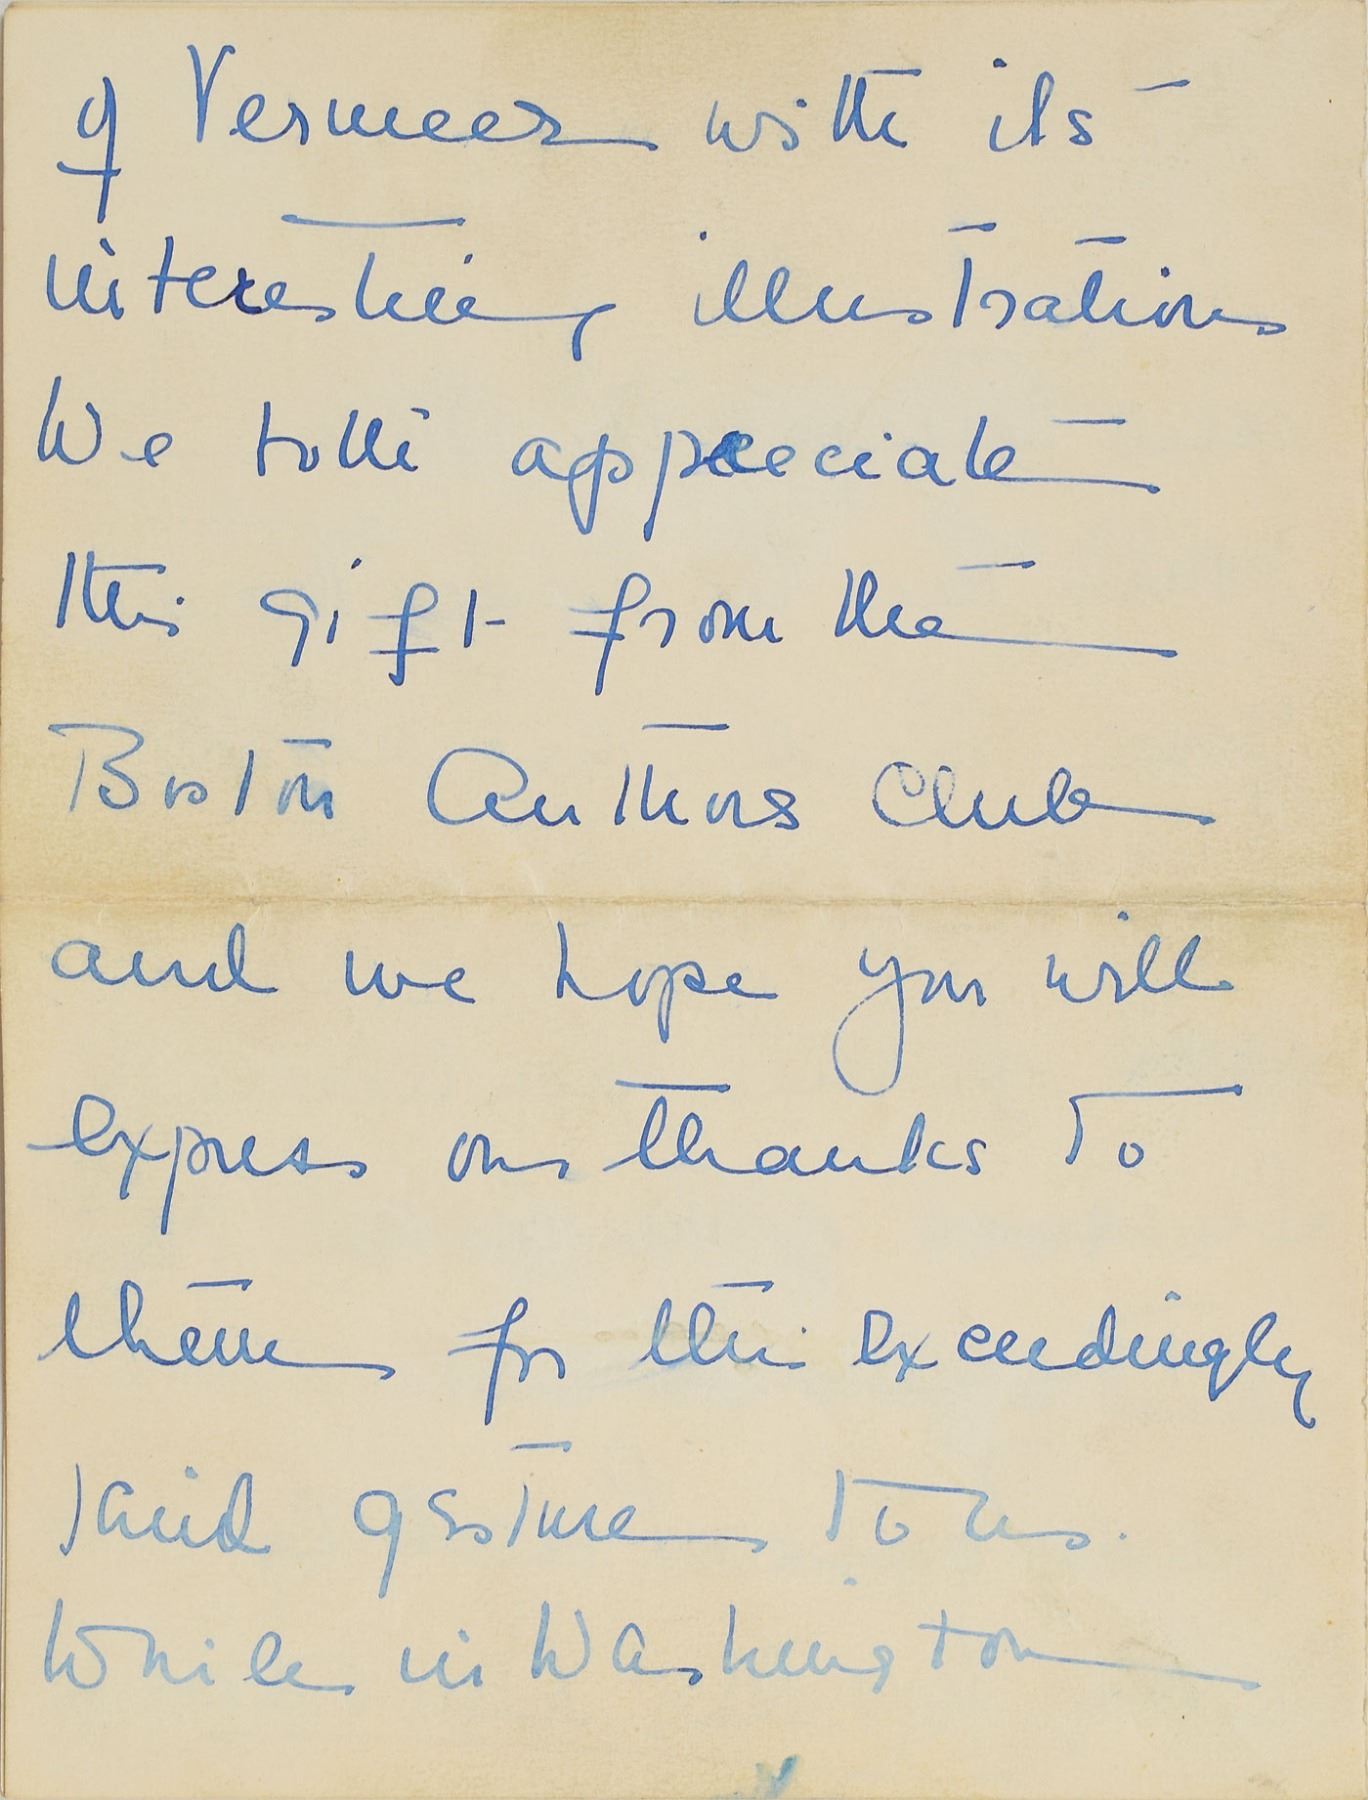 of Vermeer with its
interesting illustrations
We both appreciate
this gift from the
Boston Authors Club
and we hope you will
express our thanks to
them for this exceedingly
kind gesture to us.
While in Washington